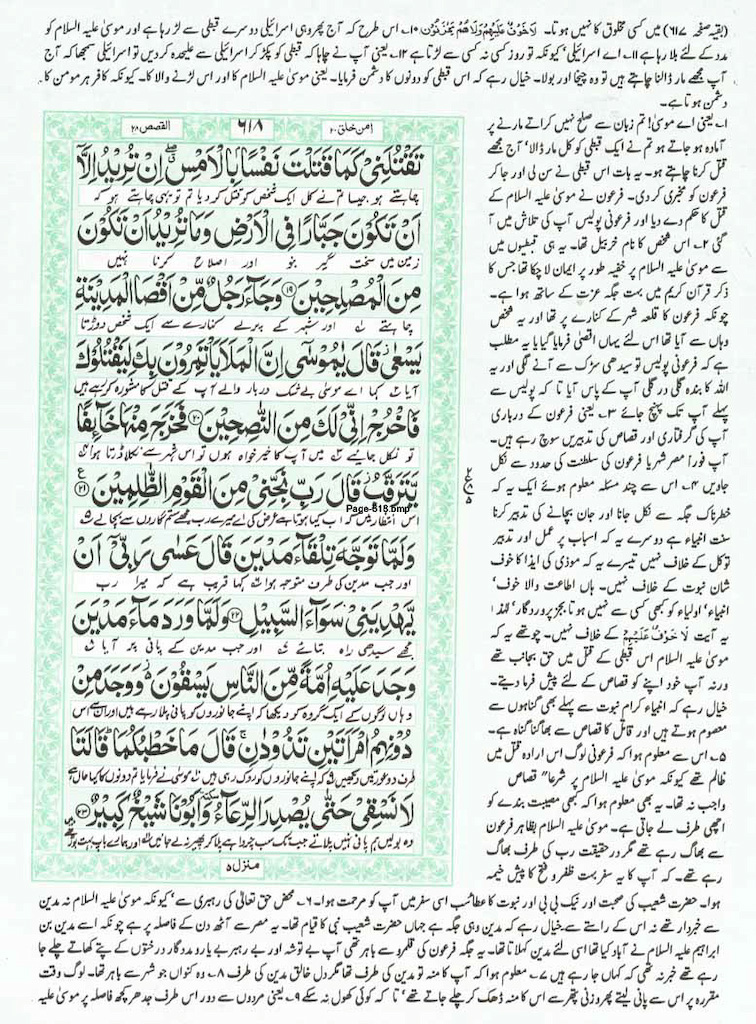 (بقیہ صفحہ ۶۱۷) میں کسی مخلوق کا نہیں ہوتا۔ لَاخَوْفٌ عَلَيْهِمْ وَلَاهُمْ يَحْزَنُوْنَ ۱۰۔ اس طرح کہ آج پھر وہی اسرائیلی دوسرے قبطی سے لڑ رہا ہے اور موسیٰ علیہ السلام کو
مدد کے لئے بلا رہا ہے ۱۱۔ اے اسرائیلی' کیونکہ تو روز کسی نہ کسی سے لڑتا ہے ۱۲۔ یعنی آپ نے چاہا کہ قبطی کو پکڑ کر اسرائیلی سے علیحدہ کر دیں تو اسرائیلی سمجھا کہ آج
آپ مجھے مار ڈالنا چاہتے ہیں تو وہ چیخا اور بولا۔ خیال رہے کہ اس قبطی کو دونوں کا دشمن فرمایا۔ یعنی موسیٰ علیہ السلام کا اور اس لڑنے والا کا۔ کیونکہ کافر ہر مومن کا
دشمن ہوتا ہے۔
امن خلق ۲۰
۶۱۸
القصص ۲۸
تَقْتُلَنِيْ كَمَا قَتَلْتَ نَفْسًۢا بِالْاَمْسِ ۖ اِنْ تُرِيْدُ اِلَّاۤ
چاہتے ہو جیسا تم نے کل ایک شخص کو قتل کر دیا تم تو یہی چاہتے ہو کہ
اَنْ تَكُوْنَ جَبَّارًا فِي الْاَرْضِ وَمَا تُرِيْدُ اَنْ تَكُوْنَ
زمین میں سخت گیر بنو اور اصلاح کرنا نہیں
مِنَ الْمُصْلِحِيْنَ ۝۱۹ وَجَآءَ رَجُلٌ مِّنْ اَقْصَا الْمَدِيْنَةِ
چاہتے اور شہر کے پرلے کنارے سے ایک شخص دوڑتا
يَسْعٰى ۫ قَالَ يٰمُوْسٰۤى اِنَّ الْمَلَاَ يَاْتَمِرُوْنَ بِكَ لِيَقْتُلُوْكَ
آیا کہا اے موسیٰ بے شک دربار والے آپ کے قتل کا مشورہ کر رہے ہیں
فَاخْرُجْ اِنِّيْ لَكَ مِنَ النّٰصِحِيْنَ ۝۲۰ فَخَرَجَ مِنْهَا خَآئِفًا
تو نکل جائیے میں آپ کا خیر خواہ ہوں تو اس شہر سے نکلا ڈرتا ہوا
يَّتَرَقَّبُ ۫ قَالَ رَبِّ نَجِّنِيْ مِنَ الْقَوْمِ الظّٰلِمِيْنَ ۝۲۱
Page-618.bmp
اس انتظار میں کہ اب کیا ہوتا ہے عرض کی اے میرے رب مجھے ستم گاروں سے بچا لے
وَلَمَّا تَوَجَّهَ تِلْقَآءَ مَدْيَنَ قَالَ عَسٰى رَبِّيْۤ اَنْ
اور جب مدین کی طرف متوجہ ہوا کہا قریب ہے کہ میرا رب
يَّهْدِيَنِيْ سَوَآءَ السَّبِيْلِ ۝۲۲ وَلَمَّا وَرَدَ مَآءَ مَدْيَنَ
مجھے سیدھی راہ بتائے اور جب مدین کے پانی پر آیا
وَجَدَ عَلَيْهِ اُمَّةً مِّنَ النَّاسِ يَسْقُوْنَ ۫ وَوَجَدَ مِنْ
وہاں لوگوں کے ایک گروہ کو دیکھا کہ اپنے جانوروں کو پانی پلا رہے ہیں اور ان سے اس
دُوْنِهِمُ امْرَاَتَيْنِ تَذُوْدٰنِ ۚ قَالَ مَا خَطْبُكُمَا ؕ قَالَتَا
طرف دو عورتیں دیکھیں کہ اپنے جانوروں کو روک رہی ہیں موسیٰ نے فرمایا تم دونوں کا کیا حال ہے
لَا نَسْقِيْ حَتّٰى يُصْدِرَ الرِّعَآءُ ٚ وَاَبُوْنَا شَيْخٌ كَبِيْرٌ ۝۲۳
وہ بولیں ہم پانی نہیں پلاتے جب تک سب چرواہے پلا کر پھیر نہ لے جائیں اور ہمارے باپ بہت بوڑھے ہیں
منزل ۵
۱۔ یعنی اے موسیٰ! تم زبان سے صلح نہیں کراتے مارنے پر
آمادہ ہو جاتے ہو تم نے ایک قبطی کو کل مار ڈالا' آج مجھے
قتل کرنا چاہتے ہو۔ یہ بات اس قبطی نے سن لی اور جا کر
فرعون کو مخبری کر دی۔ فرعون نے موسیٰ علیہ السلام کے
قتل کا حکم دے دیا اور فرعونی پولیس آپ کی تلاش میں آ
گئی ۲۔ اس شخص کا نام خربیل تھا۔ یہ ہی قبطیوں میں
سے موسیٰ علیہ السلام پر خفیہ طور پر ایمان لا چکا تھا جس کا
ذکر قرآن کریم میں بہت جگہ عزت کے ساتھ ہوا ہے۔
چونکہ فرعون کا قلعہ شہر کے کنارے پر تھا اور یہ شخص
وہاں سے آیا تھا اس لئے یہاں اقصیٰ فرمایا گیا یا یہ مطلب
ہے کہ فرعونی پولیس تو سیدھی سڑک سے آنے لگی اور یہ
اللہ کا بندہ گلی در گلی آپ کے پاس آیا تا کہ پولیس سے
پہلے آپ تک پہنچ جائے ۳۔ یعنی فرعون کے درباری
آپ کی گرفتاری اور قصاص کی تدبیریں سوچ رہے ہیں۔
آپ فوراً مصر شہر یا فرعون کی سلطنت کی حدود سے نکل
جاویں ۴۔ اس سے چند مسئلہ معلوم ہوئے ایک یہ کہ
خطرناک جگہ سے نکل جانا اور جان بچانے کی تدبیر کرنا
سنت انبیاء ہے دوسرے یہ کہ اسباب پر عمل اور تدبیر
توکل کے خلاف نہیں تیسرے یہ کہ موذی کی ایذا کا خوف
شان نبوت کے خلاف نہیں۔ ہاں اطاعت والا خوف'
انبیاء' اولیاء کو کبھی کسی سے نہیں ہوتا بجز پروردگار' لہٰذا
یہ آیت لَاخَوْفٌ عَلَيْهِمْ کے خلاف نہیں۔ چوتھے یہ کہ
موسیٰ علیہ السلام اس قبطی کے قتل میں حق بجانب تھے
ورنہ آپ خود اپنے کو قصاص کے لئے پیش فرما دیتے۔
خیال رہے کہ انبیاء کرام نبوت سے پہلے بھی گناہوں سے
معصوم ہوتے ہیں اور قاتل کا قصاص سے بھاگنا گناہ ہے۔
۵۔ اس سے معلوم ہوا کہ فرعونی لوگ اس ارادہ قتل میں
ظالم تھے کیونکہ موسیٰ علیہ السلام پر شرعا" قصاص
واجب نہ تھا۔ یہ بھی معلوم ہوا کہ کبھی مصیبت بندے کو
اچھی طرف لے جاتی ہے۔ موسیٰ علیہ السلام بظاہر فرعون
سے بھاگ رہے تھے مگر در حقیقت رب کی طرف بھاگ
رہے تھے۔ کہ آپ کا یہ سفر بہت ظفر و فتح کا پیش خیمہ
ہوا۔ حضرت شعیب کی صحبت اور نیک بی بی اور نبوت کا عطا سب اسی سفر میں آپ کو مرحمت ہوا۔ ۶۔ محض حق تعالیٰ کی رہبری سے' کیونکہ موسیٰ علیہ السلام نہ مدین
سے خبردار تھے نہ اس کے راستے سے خیال رہے کہ مدین وہی جگہ ہے جہاں حضرت شعیب نبی کا قیام تھا۔ یہ مصر سے آٹھ دن کے فاصلہ پر ہے چونکہ اسے مدین بن
ابراہیم علیہ السلام نے آباد کیا تھا اسی لئے مدین کہلاتا تھا۔ یہ جگہ فرعون کی قلمرو سے باہر تھی آپ بے توشہ اور بے رہبر بے یار و مددگار درختوں کے پتے کھاتے چلے جا
رہے تھے خبر نہ تھی کہ کہاں جا رہے ہیں ۷۔ معلوم ہوا کہ آپ کا منہ تو مدین کی طرف تھا مگر دل خالق مدین کی طرف ۸۔ وہ کنواں جو شہر سے باہر تھا۔ لوگ وقت
مقررہ پر اس سے پانی لیتے پھر وزنی پتھر سے اس کا منہ ڈھک کر چلے جاتے تھے' تا کہ کوئی کھول نہ سکے ۹۔ یعنی مردوں سے دور اس طرف جدھر کچھ فاصلہ پر موسیٰ علیہ